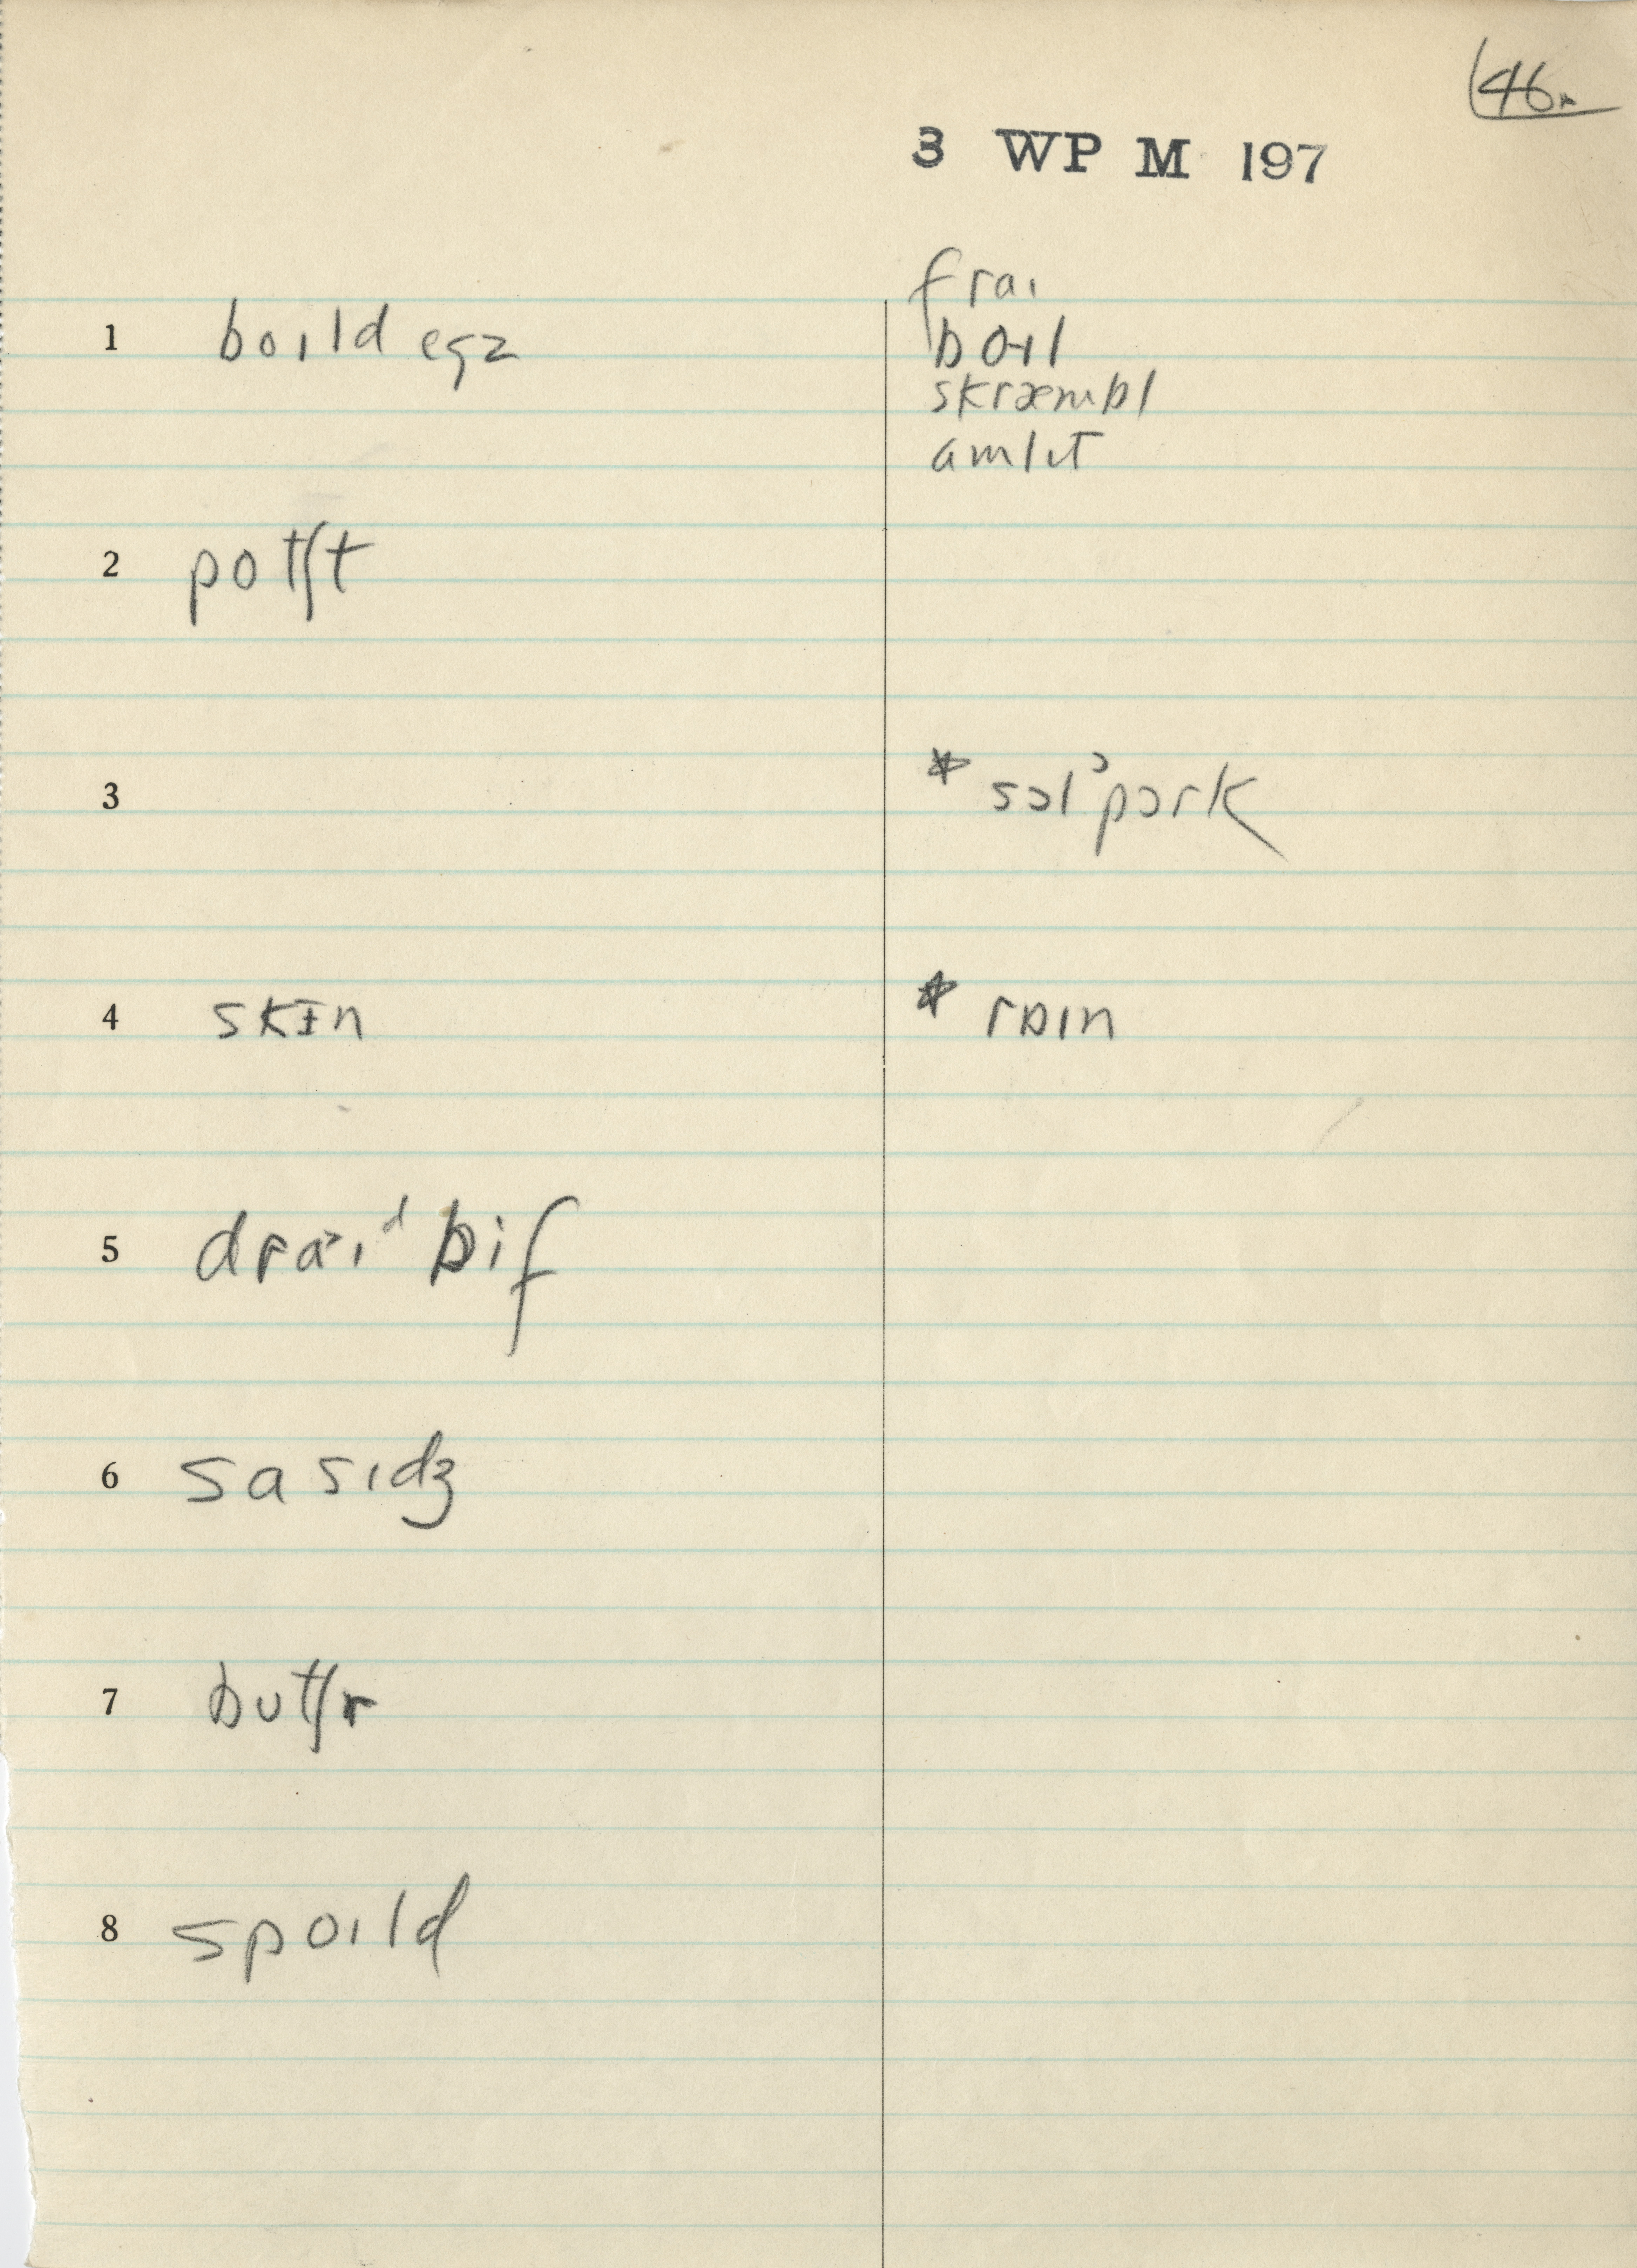 46.
3 WP M 197
fraɪ
1 boɪld egz
boɪl
skræmbl
amlɪt
2 potʃt
3 * sɔlˀpɔrk
4 skɪn * rɒɪn
5 draˑɪᵈ bif
6 sasɪdʒ
7 butʃr
8 spoɪld